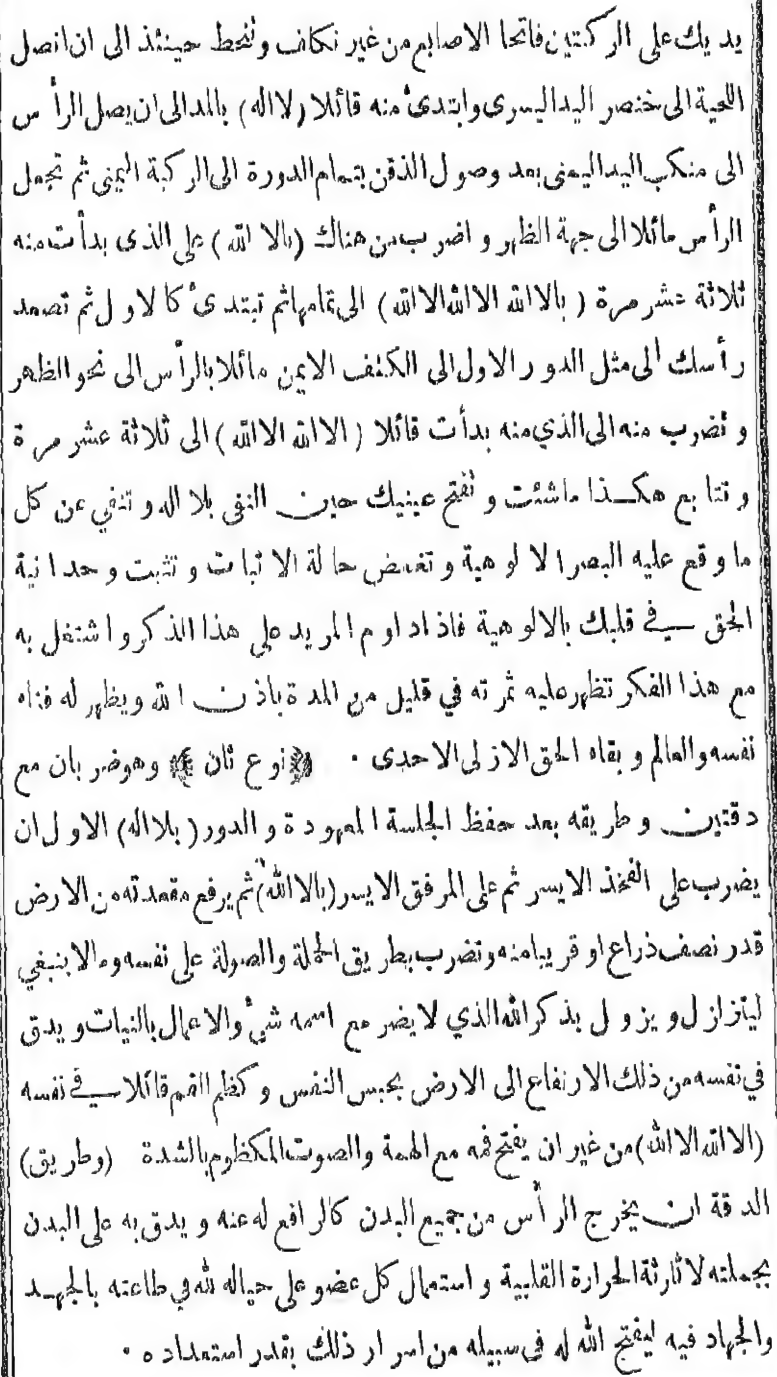 يديك على الركبتين فاتحا الاصابع من غير تكاف وتنحط حينئذ الى ان اتصل
اللحية الى خنصر اليد اليسرى وابتدئ منه قائلا (لااله) بالمد الى ان يصل الرأس
الى منكب اليد اليمنى بعد وصول الذقن بتمام الدورة الى الركبة اليمنى ثم تجعل
الرأس مائلا الى جهة الظهر و اضرب من هناك (بالا الله) على الذى بدأت منه
ثلاثة عشر مرة (بالاالله الاالله الاالله) الى تمامها ثم تبتدئ كالاول ثم تصعد
رأسك الى مثل الدور الاول الى الكتف الايمن مائلا بالرأس الى نحو الظهر
و تضرب منه الى الذي منه بدأت قائلا (الاالله الاالله) الى ثلاثة عشر مرة
و تتابع هكذا ماشئت و تفتح عينيك حين النفى بلا اله و تنفي عن كل
ما وقع عليه البصر الالوهية و تغمض حالة الاثبات و تثبت وحدانية
الحق في قلبك بالالوهية فاذا داوم المريد على هذا الذكر و اشتغل به
مع هذا الفكر تظهر عليه ثمرته في قليل من المدة باذن الله ويظهر له فناه
نفسه والعالم و بقاه الحق الازلى الاحدى ٠ ﴿نوع ثان﴾ وهو ضربان مع
دقتين و طريقه بعد حفظ الجلسة المعهودة و الدور (بلااله) الاول ان
يضرب على الفخذ الايسر ثم على المرفق الايسر (بالاالله) ثم يرفع مقعدته من الارض
قدر نصف ذراع او قريبا منه وتضرب بطريق الحملة والصولة على نفسه وما لا ينبغي
ليتزلزل و يزول بذكر الله الذي لايضر مع اسمه شئ والاعمال بالنيات و يدق
في نفسه من ذلك الارتفاع الى الارض بحبس النفس و كظم الفم قائلا في نفسه
(الاالله الاالله) من غير ان يفتح فمه مع الهمة والصوت المكظوم بالشدة (وطريق)
الدقة ان يخرج الرأس من جميع البدن كالرافع له عنه و يدق به على البدن
بجملته لاثارة الحرارة القلبية و استعمال كل عضو على حياله لله في طاعته بالجهد
والجهاد فيه ليفتح الله له فى سبيله من اسرار ذلك بقدر استعداده ٠